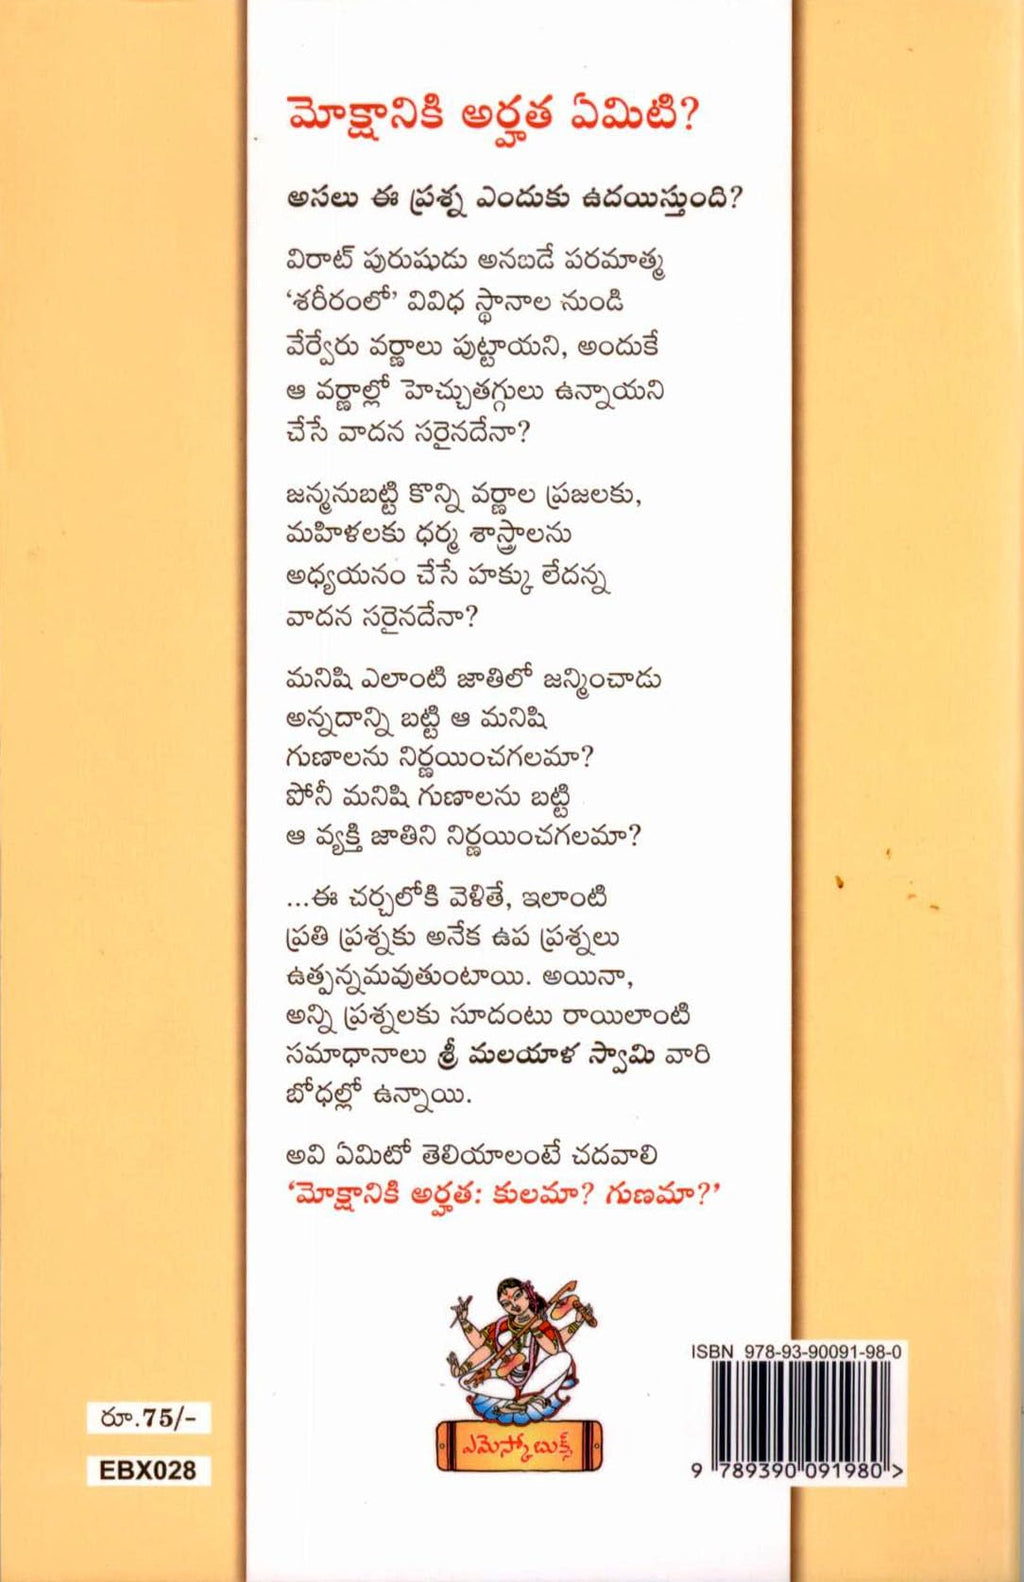 మోక్షానికి అర్హత ఏమిటి?
అసలు ఈ ప్రశ్న ఎందుకు ఉదయిస్తుంది?
విరాట్ పురుషుడు అనబడే పరమాత్మ
‘శరీరంలో’ వివిధ స్థానాల నుండి
వేర్వేరు వర్ణాలు పుట్టాయని, అందుకే
ఆ వర్ణాల్లో హెచ్చుతగ్గులు ఉన్నాయని
చేసే వాదన సరైనదేనా?
జన్మనుబట్టి కొన్ని వర్ణాల ప్రజలకు,
మహిళలకు ధర్మ శాస్త్రాలను
అధ్యయనం చేసే హక్కు లేదన్న
వాదన సరైనదేనా?
మనిషి ఎలాంటి జాతిలో జన్మించాడు
అన్నదాన్ని బట్టి ఆ మనిషి
గుణాలను నిర్ణయించగలమా?
పోనీ మనిషి గుణాలను బట్టి
ఆ వ్యక్తి జాతిని నిర్ణయించగలమా?
...ఈ చర్చలోకి వెళితే, ఇలాంటి
ప్రతి ప్రశ్నకు అనేక ఉప ప్రశ్నలు
ఉత్పన్నమవుతుంటాయి. అయినా,
అన్ని ప్రశ్నలకు సూదంటు రాయిలాంటి
సమాధానాలు శ్రీ మలయాళ స్వామి వారి
బోధల్లో ఉన్నాయి.
అవి ఏమిటో తెలియాలంటే చదవాలి
‘మోక్షానికి అర్హత: కులమా? గుణమా?’
ఎమెస్కో బుక్స్
రూ.75/-
EBX028
ISBN 978-93-90091-98-0
9 789390 091980 >